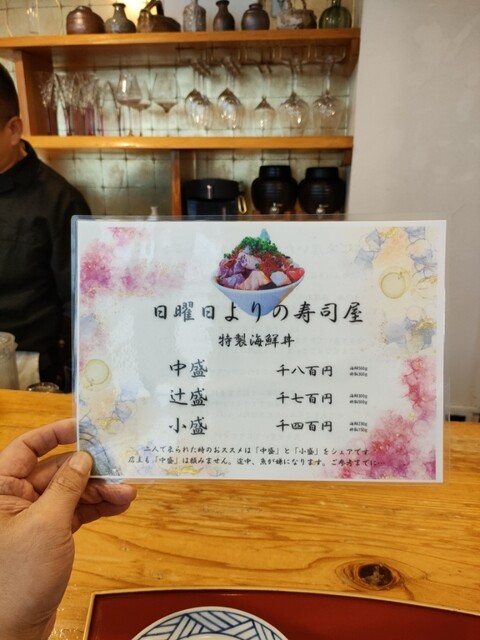 日曜日よりの寿司屋
特製海鮮丼
中盛 千八百円
辻盛 千七百円
小盛 千四百円
二人で来られた時のおススメは「中盛」と「小盛」をシェアです
店主も「中盛」は頼みません。途中、魚が嫌になります。ご参考までに…